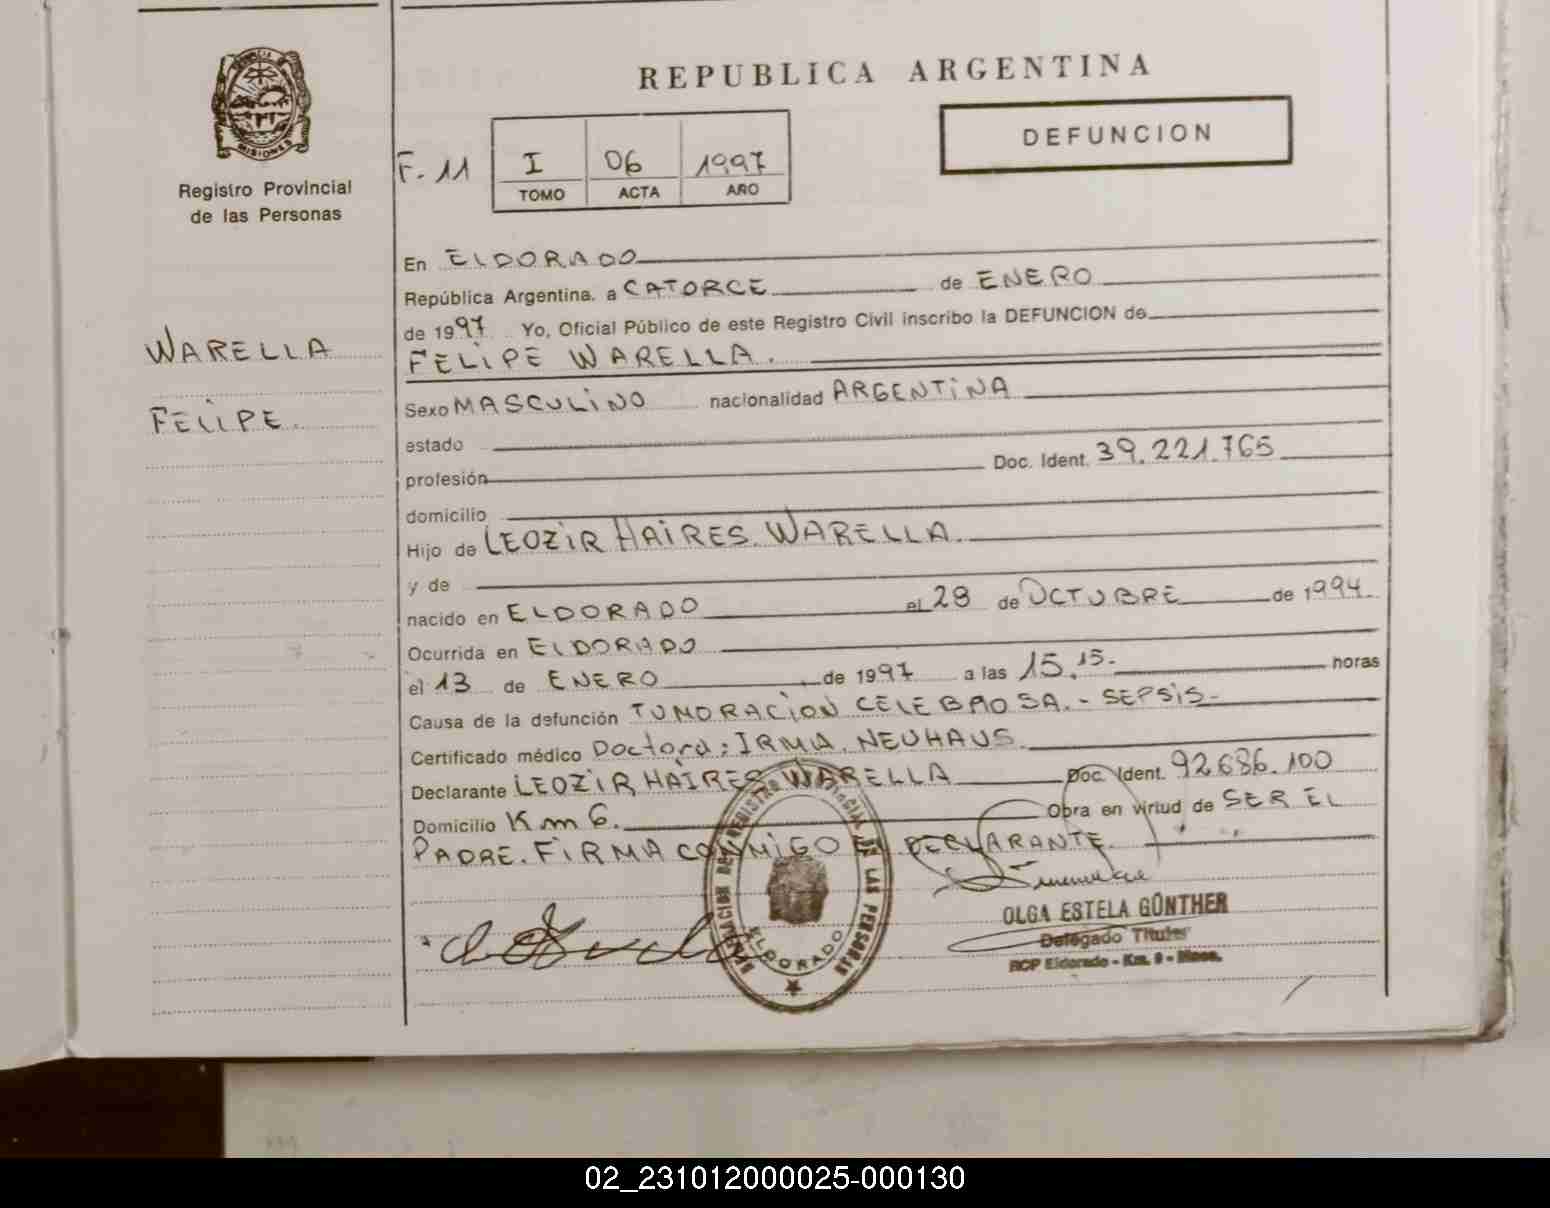 REPUBLICA ARGENTINA
MISIONES
Registro Provincial
de las Personas
F. 11
I 06 1997
TOMO ACTA AÑO
DEFUNCION
WARELLA
FELIPE.
En ELDORADO
República Argentina. a CATORCE de ENERO
de 1997 Yo, Oficial Público de este Registro Civil inscribo la DEFUNCION de
FELIPE WARELLA.
Sexo MASCULINO nacionalidad ARGENTINA
estado
profesión Doc. Ident. 39.221.765
domicilio
Hijo de LEOZIR HAIRES. WARELLA.
y de
nacido en ELDORADO el 28 de OCTUBRE de 1994.
Ocurrida en ELDORADO
el 13 de ENERO de 1997 a las 15.15. horas
Causa de la defunción TUMORACION CELEBROSA. - SEPSIS-
Certificado médico Doctora: IRMA. NEUHAUS.
Declarante LEOZIR HAIRES WARELLA Doc. Ident. 92686.100
Domicilio Km 6. Obra en virtud de SER EL
PADRE. FIRMA CONMIGO EL DECLARANTE.
DE LAS PERSONAS
ELDORADO
OLGA ESTELA GÜNTHER
Delegado Titular
RCP Eldorado - Km. 9 - Mnes.
02_231012000025-000130